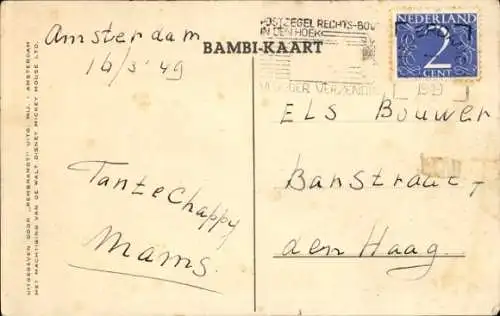 Amsterdam
14/3'49
BAMBI-KAART
POSTZEGEL RECHTS-BOVEN
IN DEN HOEK
VERZENDING
NEDERLAND
2
CENT
1949
ELS Bouwer
Banstraat
den Haag.
Tante Chappy
Mams.
UITGEGEVEN DOOR „REMBRANDT” UITG. MIJ. - AMSTERDAM
MET MACHTIGING VAN DE WALT DISNEY MICKEY MOUSE LTD.